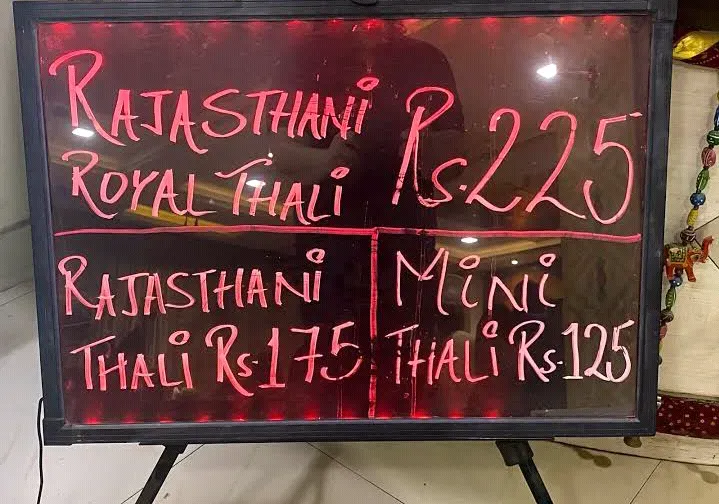 RAJASTHANi
ROYAL THALi
Rs.225
RAJASTHANi
THALi Rs.175
MiNi
THALi Rs.125